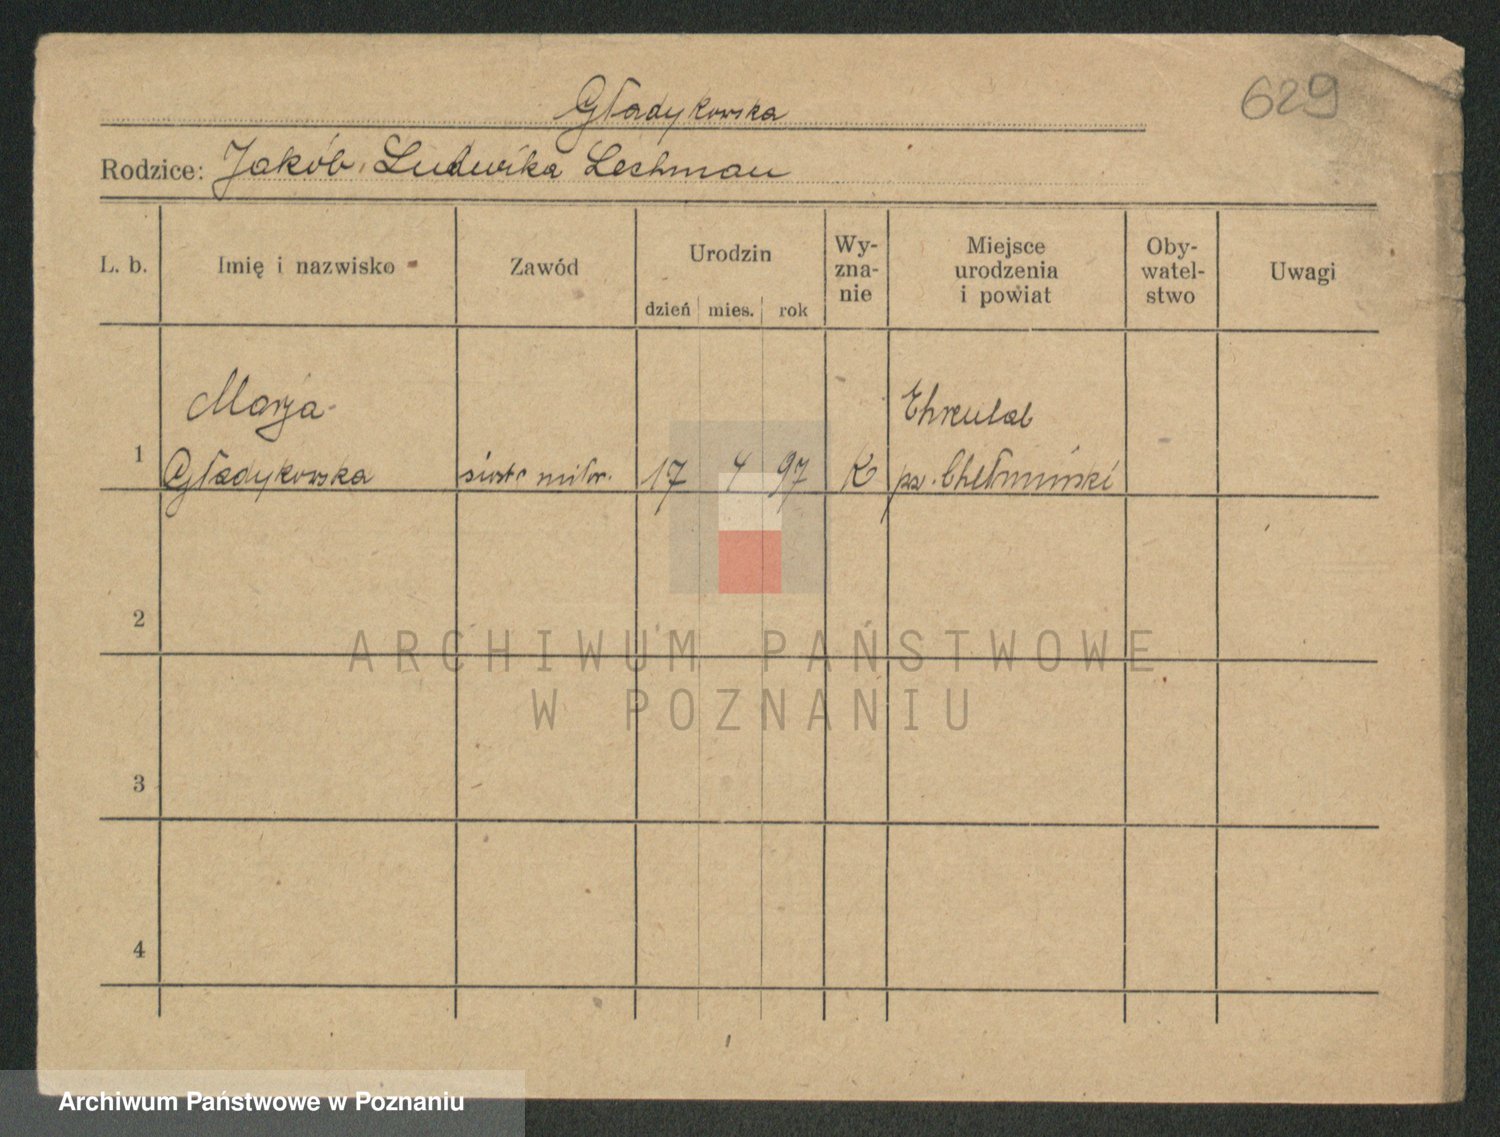 629
Gładykowska
Rodzice: Jakób, Ludwika Leshman
L. b.
Imię i nazwisko
Zawód
Urodzin
dzień mies. rok
Wy-
zna-
nie
Miejsce
urodzenia
i powiat
Oby-
watel-
stwo
Uwagi
1
Marja
Gładykowska
siostr miłos.
17 4 97
K
pw. Chełmiński
2
3
4
ARCHIWUM PAŃSTWOWE
W POZNANIU
Archiwum Państwowe w Poznaniu